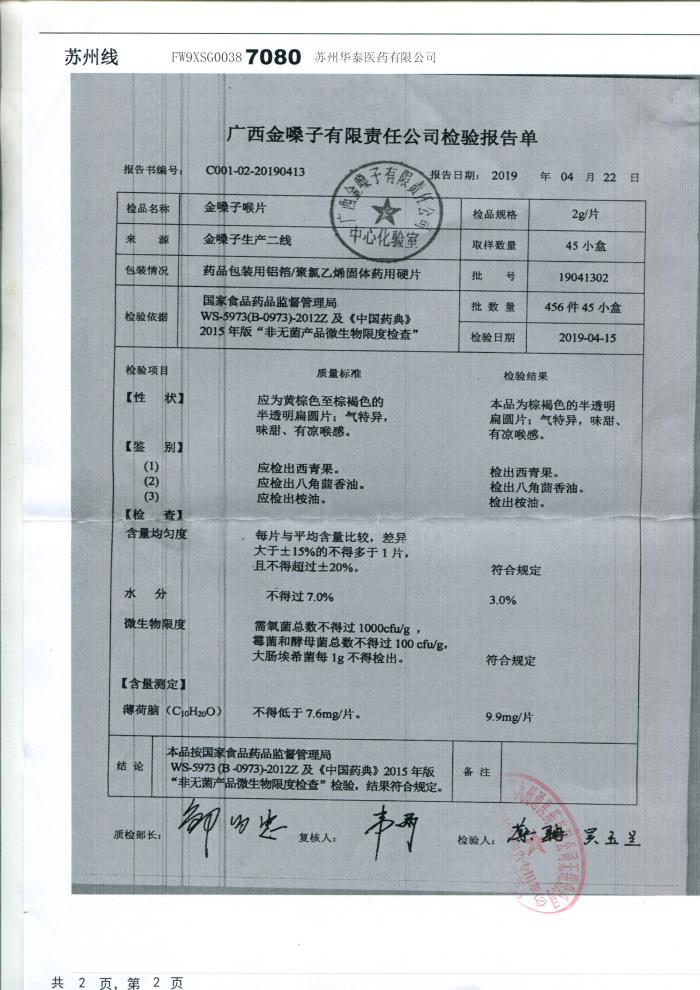 苏州线 FW9XSG0038 7080 苏州华泰医药有限公司
广西金嗓子有限责任公司检验报告单
报告书编号: C001-02-20190413 报告日期: 2019 年 04 月 22 日
广西金嗓子有限责任公司
中心化验室
检品名称 金嗓子喉片 检品规格 2g/片
来 源 金嗓子生产二线 取样数量 45 小盒
包装情况 药品包装用铝箔/聚氯乙烯固体药用硬片 批 号 19041302
检验依据 国家食品药品监督管理局
WS-5973(B-0973)-2012Z 及《中国药典》
2015 年版“非无菌产品微生物限度检查”
批 数 量 456 件 45 小盒
检验日期 2019-04-15
检验项目 质量标准 检验结果
【性 状】 应为黄棕色至棕褐色的 本品为棕褐色的半透明
半透明扁圆片；气特异， 扁圆片；气特异，味甜、
味甜、有凉喉感。 有凉喉感。
【鉴 别】
(1) 应检出西青果。 检出西青果。
(2) 应检出八角茴香油。 检出八角茴香油。
(3) 应检出桉油。 检出桉油。
【检 查】
含量均匀度 每片与平均含量比较，差异
大于±15%的不得多于 1 片，
且不得超过±20%。 符合规定
水 分 不得过 7.0% 3.0%
微生物限度 需氧菌总数不得过 1000cfu/g ，
霉菌和酵母菌总数不得过 100 cfu/g，
大肠埃希菌每 1g 不得检出。 符合规定
【含量测定】
薄荷脑（C10H20O） 不得低于 7.6mg/片。 9.9mg/片
结 论 本品按国家食品药品监督管理局
WS-5973 (B -0973)-2012Z 及《中国药典》2015 年版
“非无菌产品微生物限度检查”检验，结果符合规定。
备 注
质检部长: 复核人: 检验人: 吴玉兰
共 2 页, 第 2 页